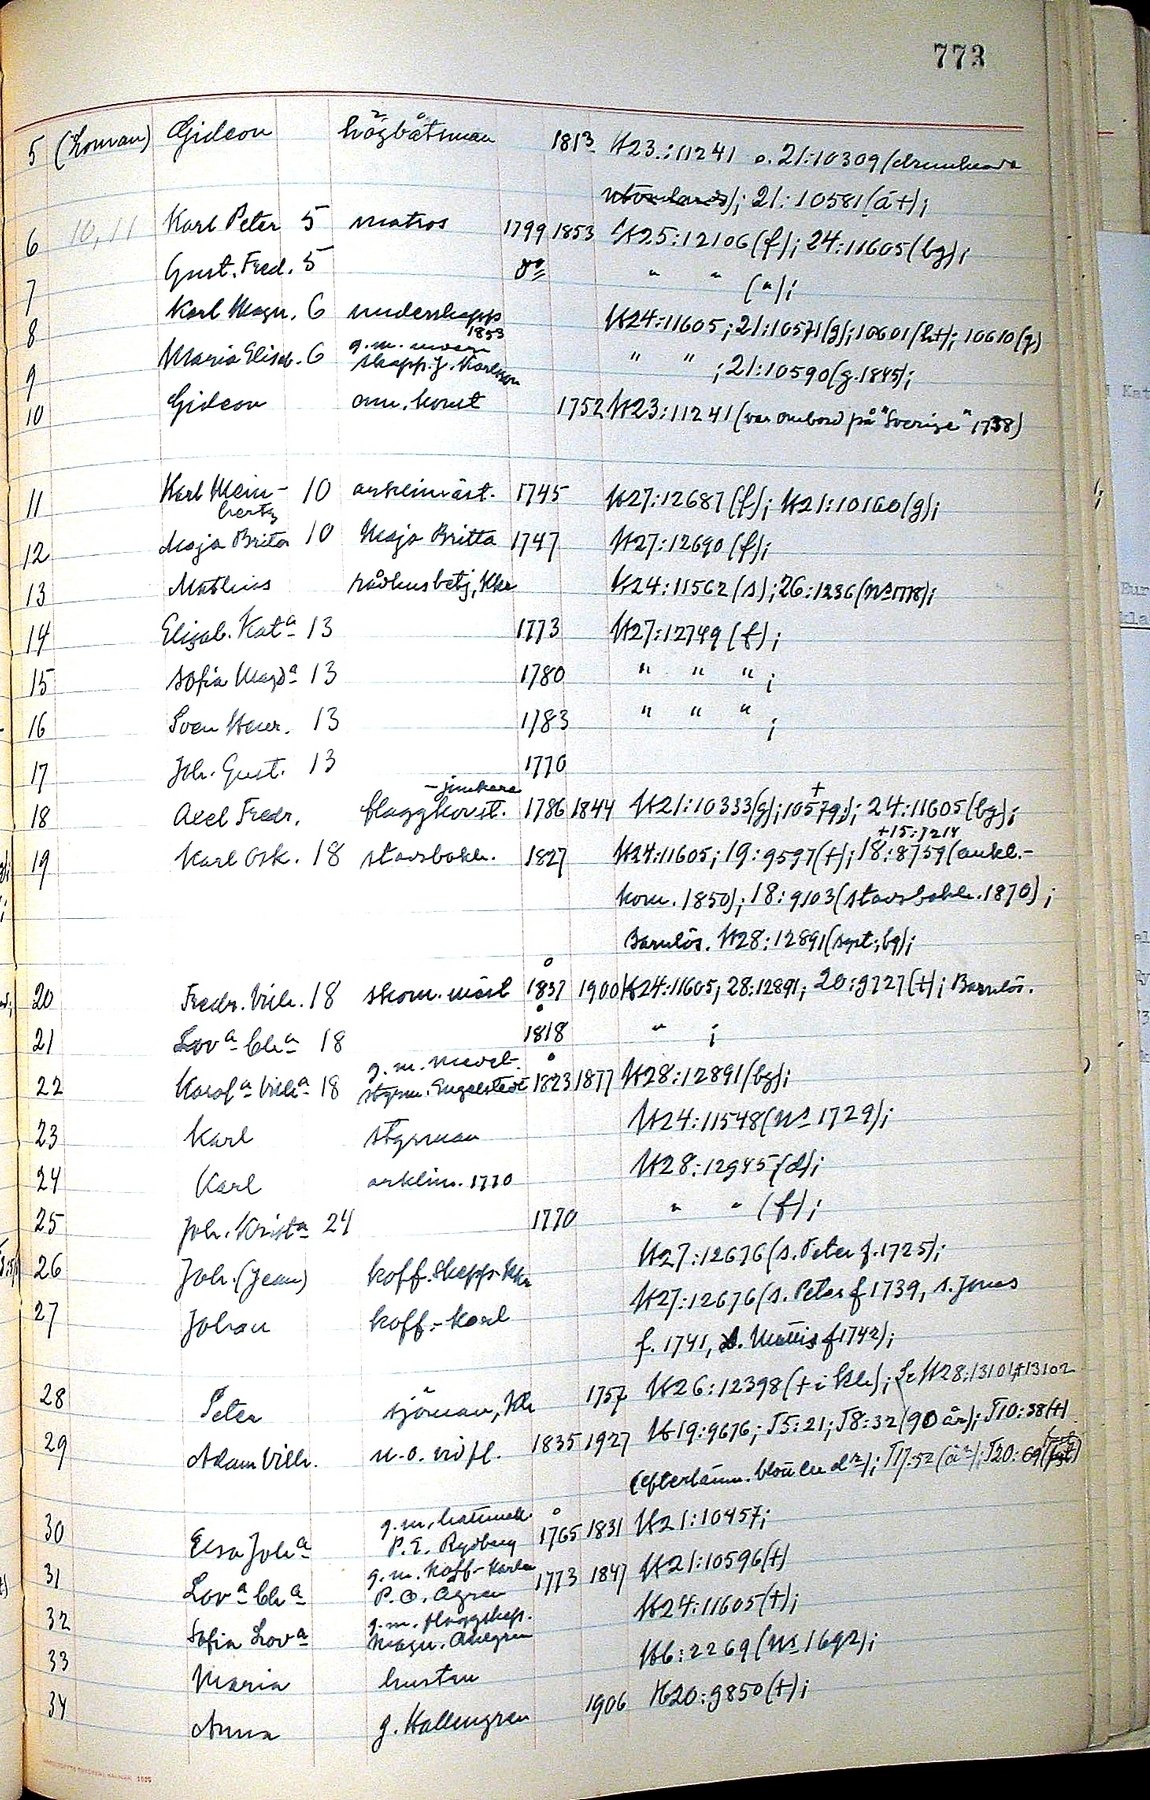 773
5 (Loman) Gideon högbåtsman 1813 K23:11241 o. 21:10309 (drunknade
utomlands); 21:10581 (å+);
6 10, 11 Karl Peter 5 matros 1799 1853 K25:12106 (f); 24:11605 (bg);
7 Gust. Fred. 5 do " " (");
8 Karl Magn. 6 underskepp 1853 K24:11605; 21:10571 (g); 10601 (h+); 10610 (g)
9 Maria Elisab. 6 g.m. skepp. J. Karlsson " " ; 21:10590 (g. 1845);
10 Gideon konst 1752 K23:11241 (var ombord på "Sverige" 1738)
11 Karl Mein-
hertz 10 arklimäst. 1745 K27:12687 (f); K21:10160 (g);
12 Maja Brita 10 Maja Britta 1747 K27:12690 (f);
13 Mathias rådhusbetj, Kkr K24:11562 (s); 26:1236 (ns 1778);
14 Elisab. Kata 13 1773 K27:12749 (f);
15 Sofia Magda 13 1780 " " " ;
16 Sven Henr. 13 1783 " " " ;
17 Joh. Gust. 13 1770
18 Axel Fredr. flaggkonst. -junkare 1786 1844 K21:10333 (g); 10579 +; 24:11605 (bg);
+15:7214
19 Karl Osk. 18 stadsbokh. 1827 K24:11605; 19:9597 (+); 18:8759 (aukl.-
kom. 1850); 18:9103 (stadsbokh. 1870);
Barnlös. K28:12891 (sept; bg);
20 Fredr. Vilh. 18 skom. mäst 1837 1900 K24:11605, 28:12891; 20:9727 (+); Barnlös.
21 Lova Cha 18 1818 " ;
22 Karola Vilha 18 g. m. styrm. Engelstedt 1823 1877 K28:12891 (bg);
23 Karl styrman K24:11548 (ns 1729);
24 Karl arklim. 1770 K28:12945 (d);
25 Joh. Krista 24 1770 " " (f);
26 Joh. (Jean) koff. skepp. Kkr K27:12676 (s. Peter f. 1725);
27 Johan koff.-karl K27:12676 (s. Peter f 1739, s. Jonas
f. 1741, s. Mattis f 1742);
28 Peter sjöman, Kkr 1757 K26:12398 (+ i Kkr); Se K28:13101, +13102
29 Adam Vilh. u.o. vid fl. 1835 1927 K19:9676; T5:21; T8:32 (90 år); T10:38 (+)
(efterlämn. blott en dr); T17:52 (år); T20:69
30 Elsa Joha g.m. P.E. Rydberg 1765 1831 K21:10457;
31 Lova Cha g.m. koff-karlen P.O. Agren 1773 1847 K21:10596 (+)
32 Sofia Lova g.m. flaggskep. Magn. Ahlgren K24:11605 (+);
33 Maria hustru K6:2269 (ns 1692);
34 Anna g. Hallengren 1906 K20:9850 (+);